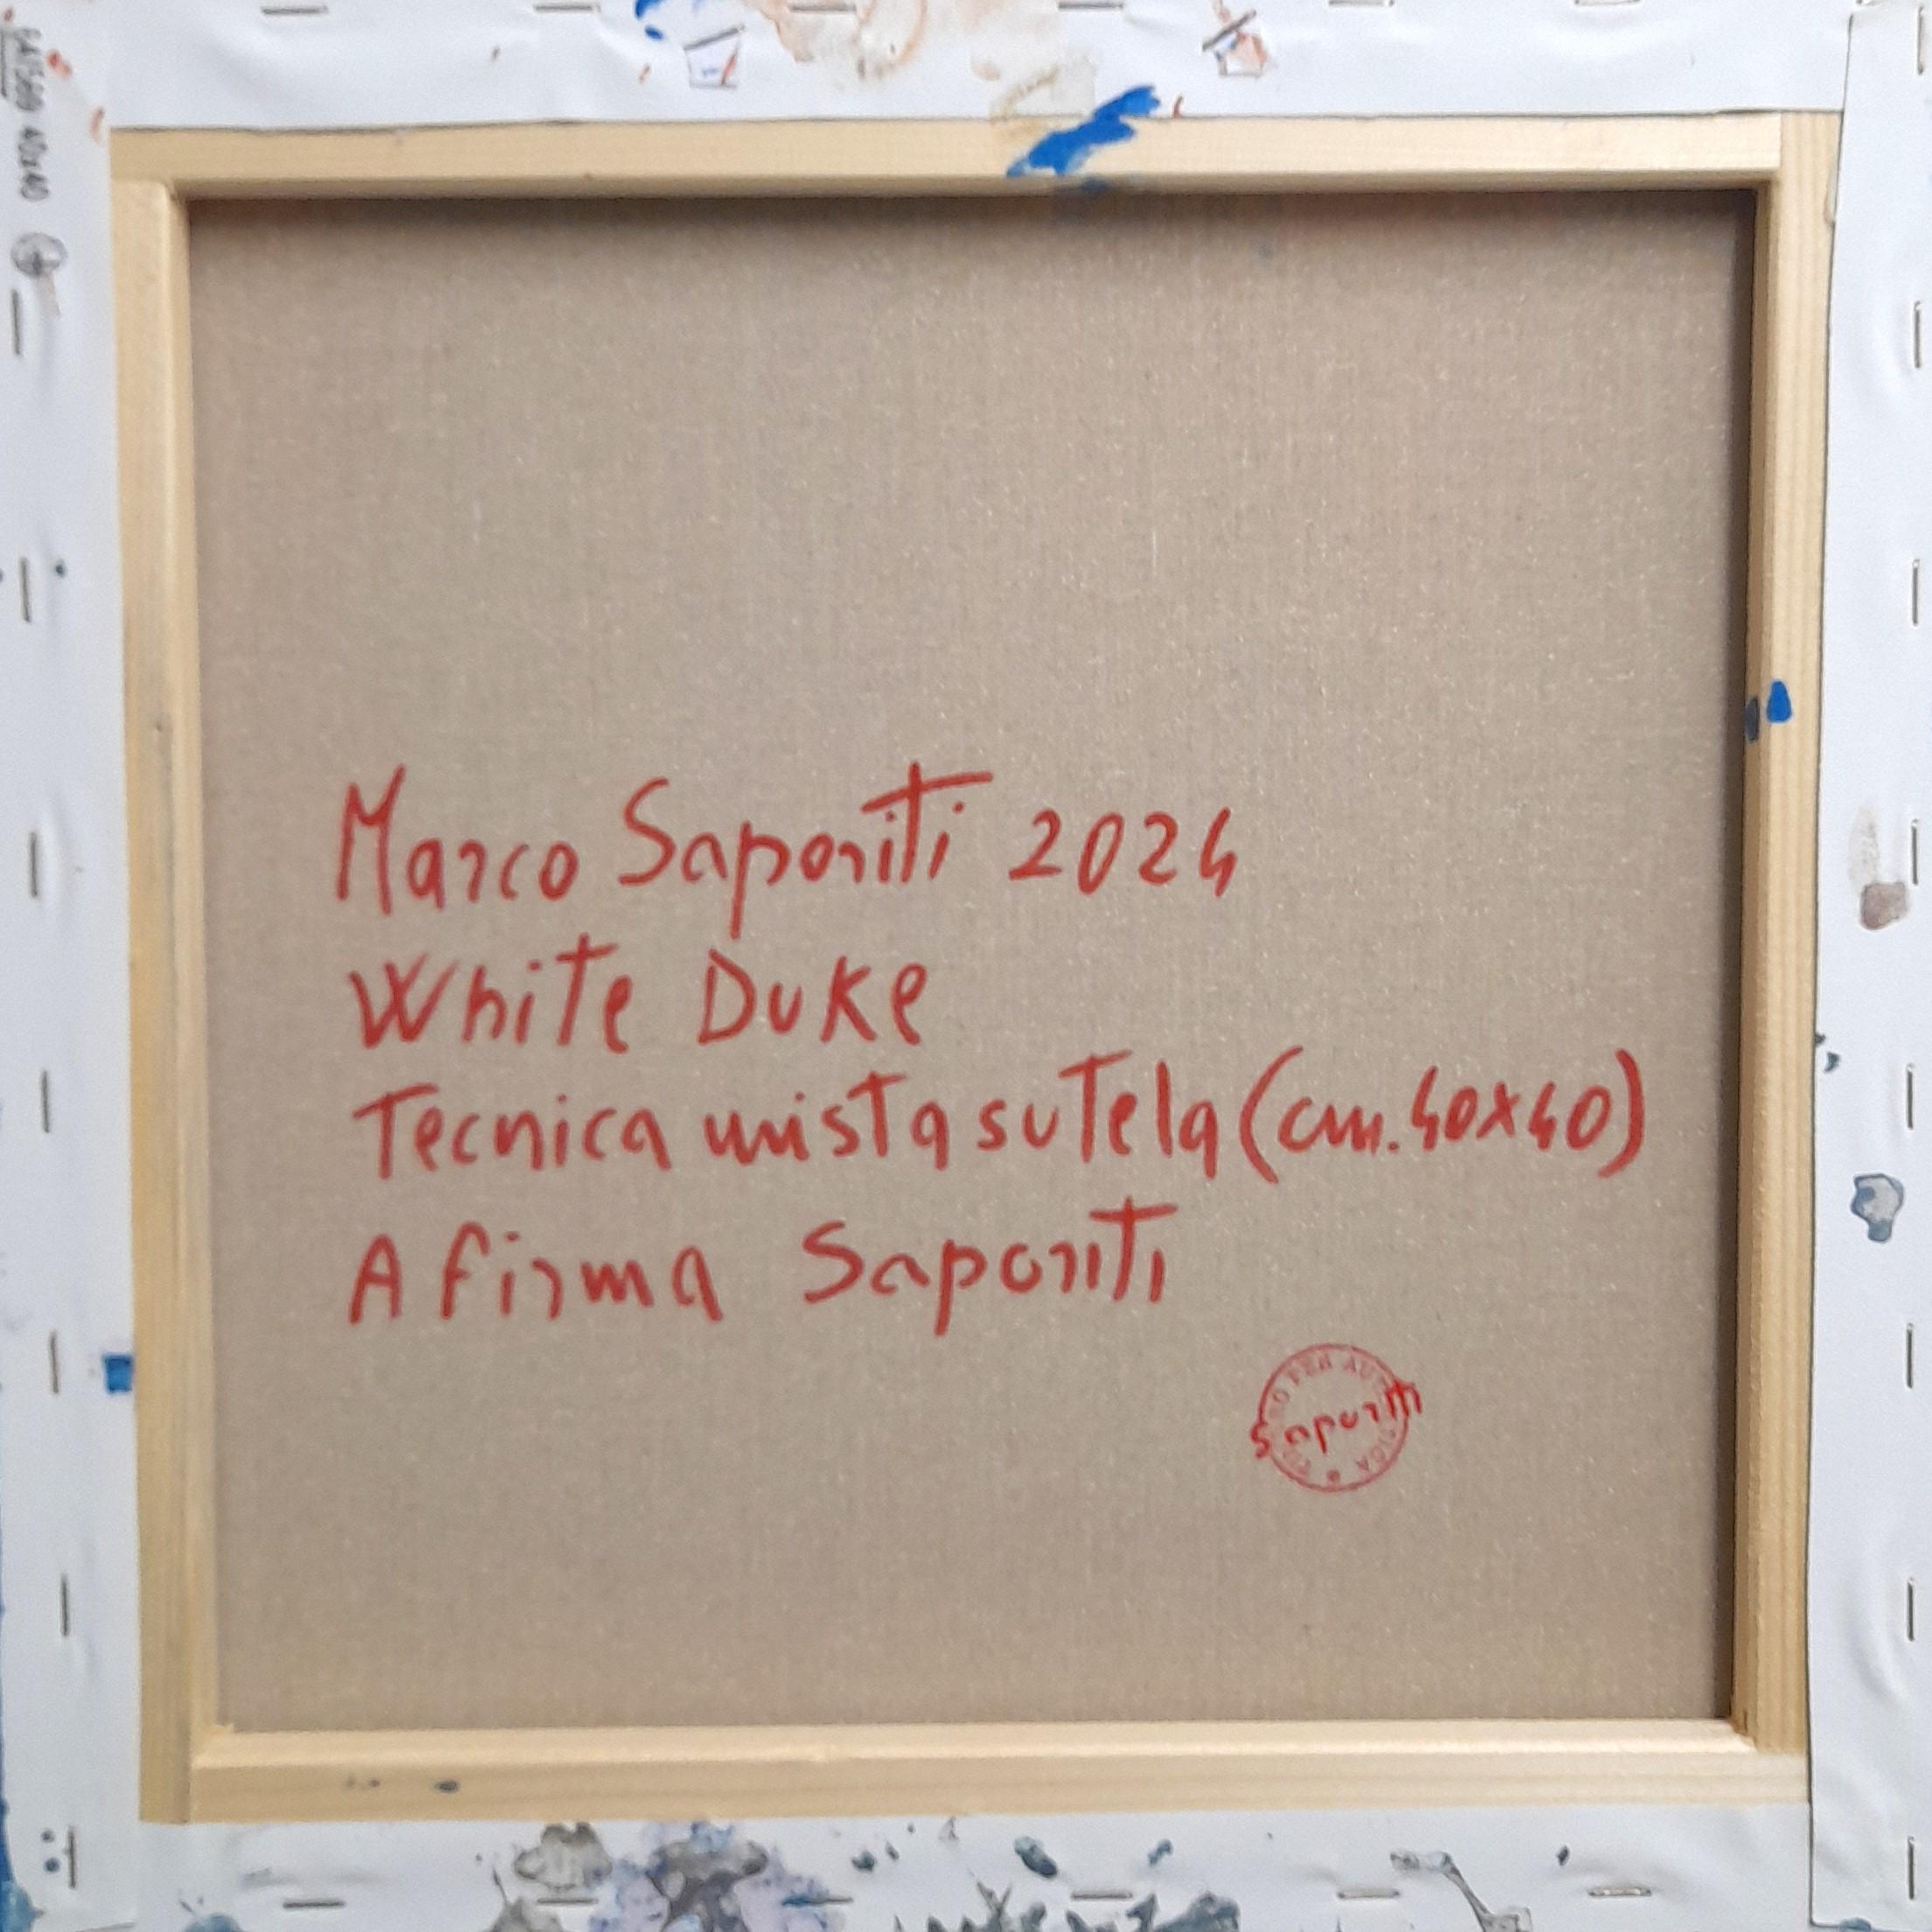 Marco Saporiti 2024
White Duke
Tecnica mista su tela (cm. 40x40)
A firma Saporiti
PER AUTENTICA
Saporiti
40x40